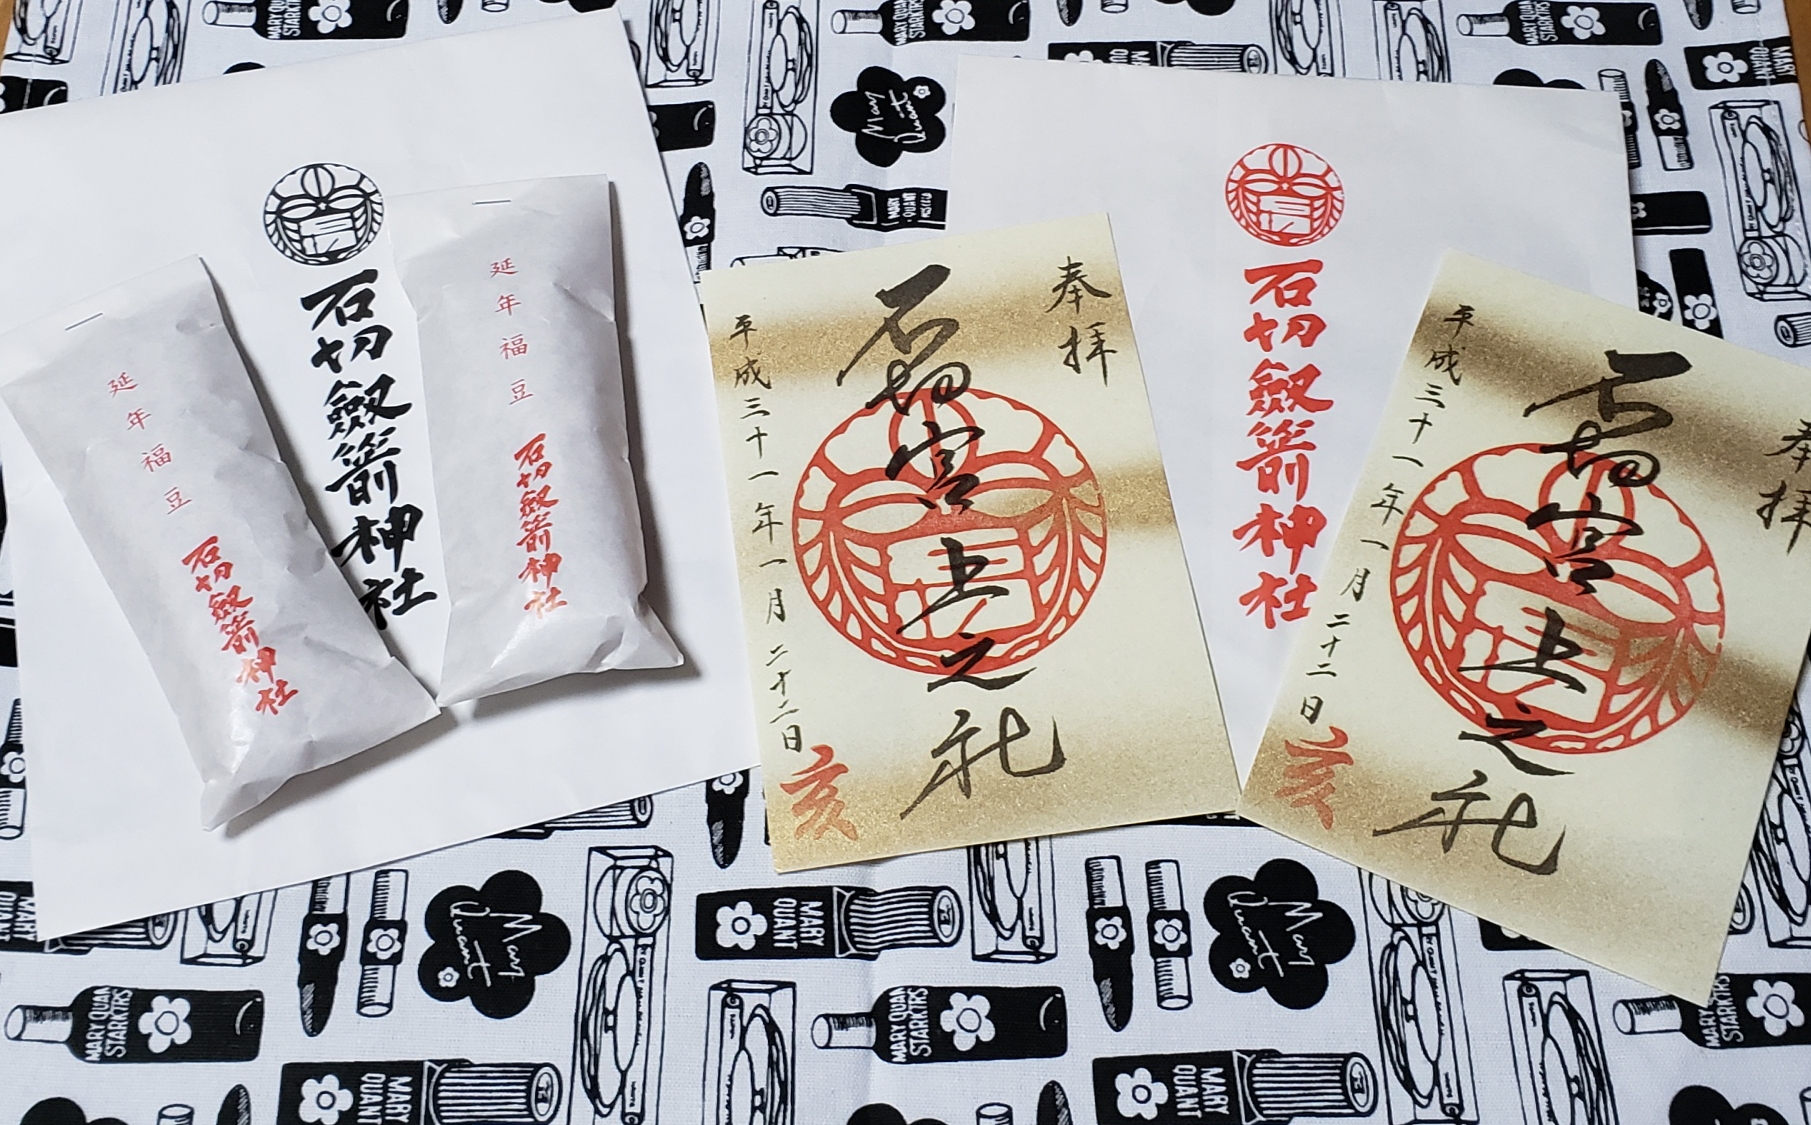 石切劔箭神社
延年福豆
石切劔箭神社
延年福豆
石切劔箭神社
奉拝
石切宮上之社
平成三十一年一月二十二日
亥
石切劔箭神社
奉拝
石切宮上之社
平成三十一年一月二十二日
亥
Mary Quant
MARY QUANT
Mary Quant
MARY QUANT
Mary Quant
MARY QUANT
MARY QUANT